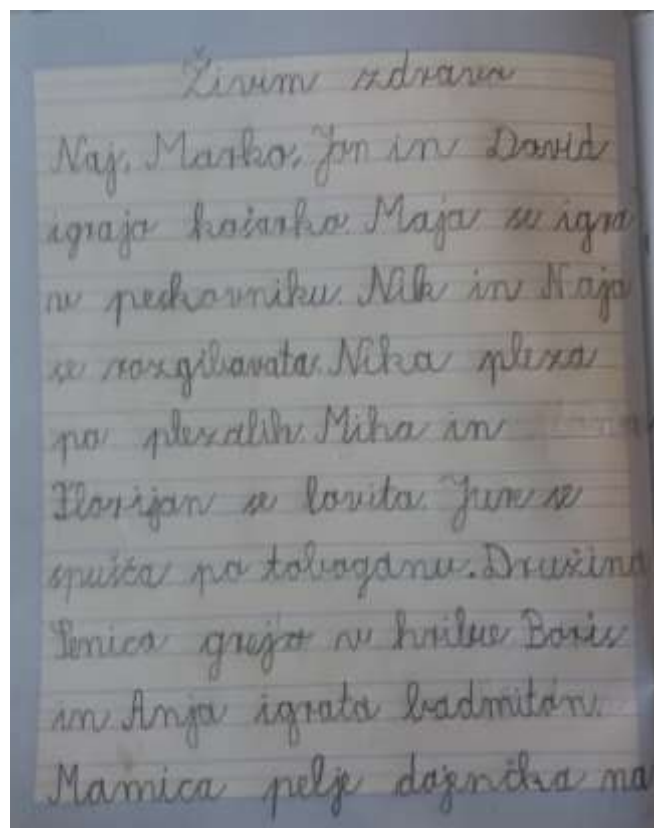 Živim zdravo
Naj, Marko, Jan in David
igrajo košarko. Maja se igra
v peskovniku. Nik in Naja
se razgibavata. Nika pleza
po plezalih. Miha in
Florijan se lovita. Jure se
spušča po toboganu. Družina
Senica grejo v hribe. Boris
in Anja igrata badmitón.
Mamica pelje dojenčka na